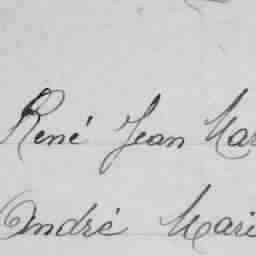 René Jean Mar
André Mari